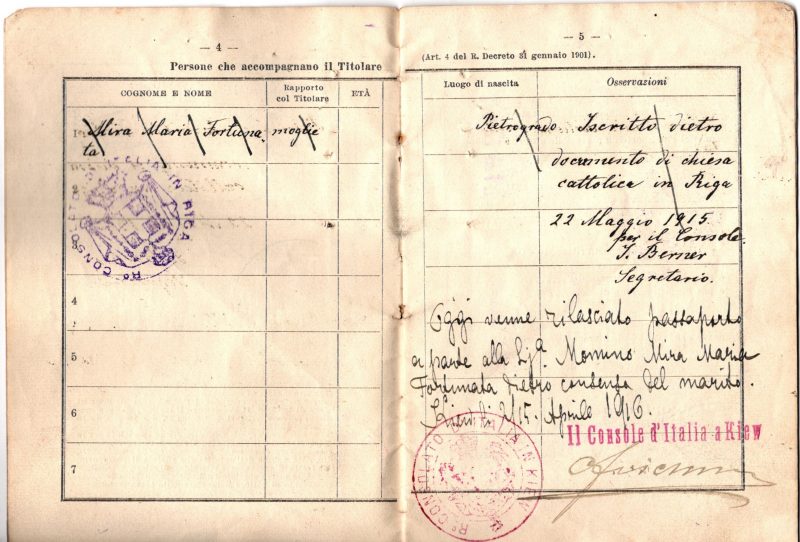 — 4 —
Persone che accompagnano il Titolare
COGNOME E NOME
Rapporto
col Titolare
ETÀ
1 Mira Maria Fortuna- moglie
ta
2
3
4
5
6
7
Rº CONSOLATO D'ITALIA IN RIGA
— 5 —
(Art. 4 del R. Decreto 31 gennaio 1901).
Luogo di nascita
Osservazioni
Pietrogrado. Iscritto dietro
documento di chiesa
cattolica in Riga
22 Maggio 1915.
per il Console.
J. Berner
Segretario.
Oggi venne rilasciato passaporto
a parte alla Sigª Momino Mira Maria
Fortunata dietro consenso del marito.
Kiew li 2/15. Aprile 1916.
Il Console d'Italia a Kiew
Rº CONSOLATO D'ITALIA IN KIEW